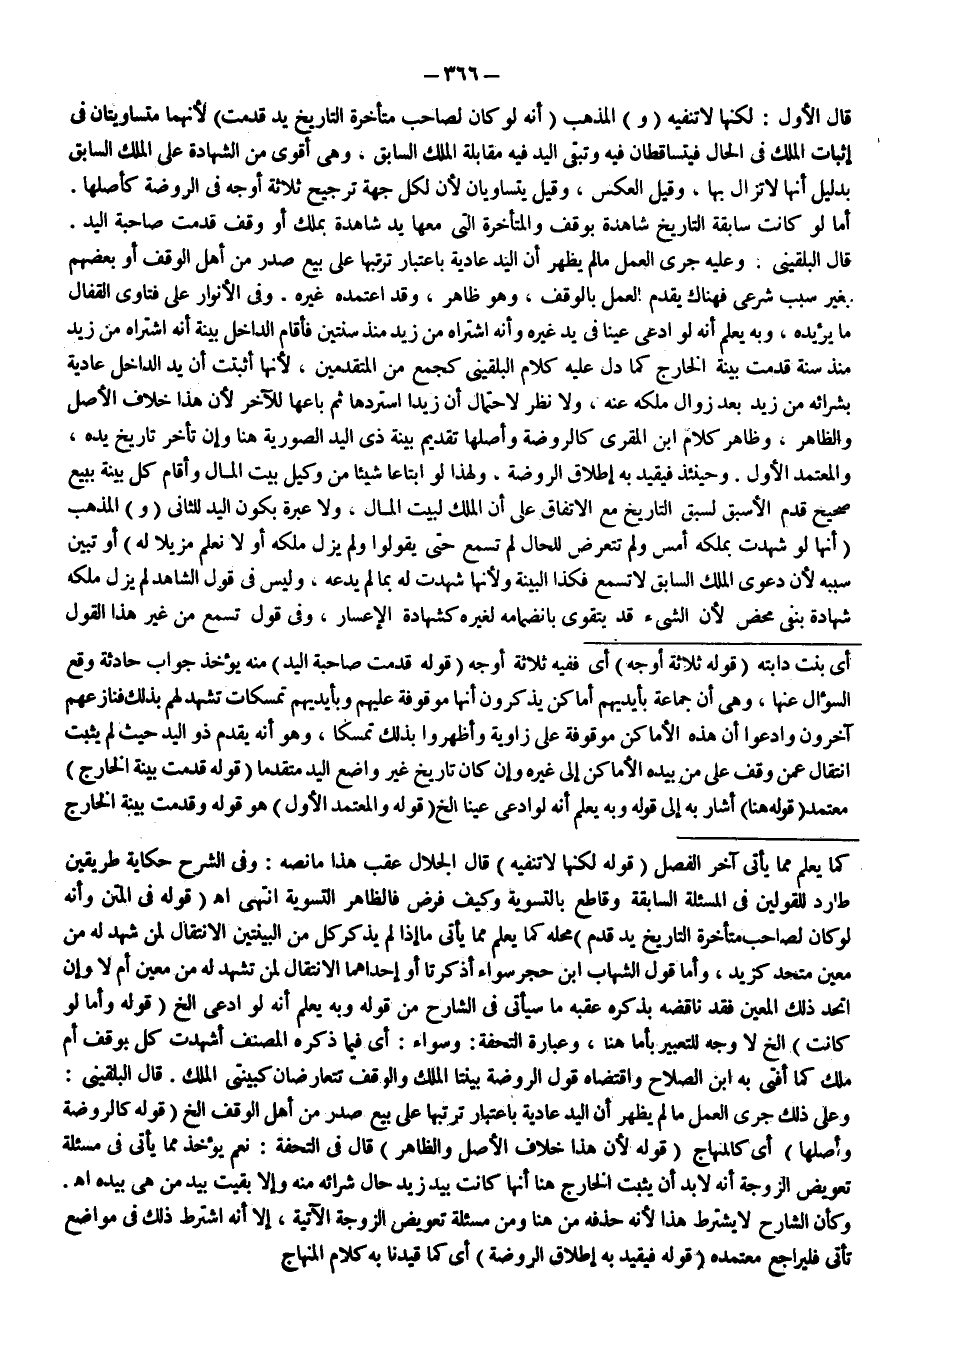 — ٣٦٦ —
قال الأول : لكنها لاتنفيه ( و ) المذهب ( أنه لو كان لصاحب متأخرة التاريخ يد قدمت ) لأنهما متساويتان فى
إثبات الملك فى الحال فيتساقطان فيه وتبقى اليد فيه مقابلة الملك السابق ، وهى أقوى من الشهادة على الملك السابق
بدليل أنها لاتزال بها ، وقيل العكس ، وقيل يتساويان لأن لكل جهة ترجيح ثلاثة أوجه فى الروضة كأصلها .
أما لو كانت سابقة التاريخ شاهدة بوقف والمتأخرة التى معها يد شاهدة بملك أو وقف قدمت صاحبة اليد .
قال البلقينى : وعليه جرى العمل مالم يظهر أن اليد عادية باعتبار ترتبها على بيع صدر من أهل الوقف أو بعضهم
بغير سبب شرعى فهناك يقدم العمل بالوقف ، وهو ظاهر ، وقد اعتمده غيره . وفى الأنوار على فتاوى القفال
ما يؤيده ، وبه يعلم أنه لو ادعى عينا فى يد غيره وأنه اشتراه من زيد منذ سنتين فأقام الداخل بينة أنه اشتراه من زيد
منذ سنة قدمت بينة الخارج كما دل عليه كلام البلقينى كجمع من المتقدمين ، لأنها أثبتت أن يد الداخل عادية
بشرائه من زيد بعد زوال ملكه عنه ، ولا نظر لاحتمال أن زيدا استردها ثم باعها للآخر لأن هذا خلاف الأصل
والظاهر ، وظاهر كلام ابن المقرى كالروضة وأصلها تقديم بينة ذى اليد الصورية هنا وإن تأخر تاريخ يده ،
والمعتمد الأول . وحينئذ فيقيد به إطلاق الروضة . ولهذا لو ابتاعا شيئا من وكيل بيت المـال وأقام كل بينة ببيع
صحيح قدم الأسبق لسبق التاريخ مع الاتفاق على أن الملك لبيت المـال ، ولا عبرة بكون اليد للثانى ( و ) المذهب
( أنها لو شهدت بملكه أمس ولم تتعرض للحال لم تسمع حتى يقولوا ولم يزل ملكه أو لا نعلم مزيلا له ) أو تبين
سببه لأن دعوى الملك السابق لاتسمع فكذا البينة ولأنها شهدت له بما لم يدعه ، وليس فى قول الشاهد لم يزل ملكه
شهادة بنفى محض لأن الشىء قد يتقوى بانضمامه لغيره كشهادة الإعسار ، وفى قول تسمع من غير هذا القول
أى بنت دابته ( قوله ثلاثة أوجه ) أى ففيه ثلاثة أوجه ( قوله قدمت صاحبة اليد ) منه يؤخذ جواب حادثة وقع
السؤال عنها ، وهى أن جماعة بأيديهم أماكن يذكرون أنها موقوفة عليهم وبأيديهم تمسكات تشهد لهم بذلك فنازعهم
آخرون وادعوا أن هذه الأماكن موقوفة على زاوية وأظهروا بذلك تمسكا ، وهو أنه يقدم ذو اليد حيث لم يثبت
انتقال عمن وقف على من بيده الأماكن إلى غيره وإن كان تاريخ غير واضع اليد متقدما ( قوله قدمت بينة الخارج )
معتمد ( قوله هنا ) أشار به إلى قوله وبه يعلم أنه لو ادعى عينا الخ ( قوله والمعتمد الأول ) هو قوله وقدمت بينة الخارج
كما يعلم مما يأتى آخر الفصل ( قوله لكنها لاتنفيه ) قال الجلال عقب هذا مانصه : وفى الشرح حكاية طريقين
طارد للقولين فى المسئلة السابقة وقاطع بالتسوية وكيف فرض فالظاهر التسوية انتهى اه ( قوله فى المتن وأنه
لو كان لصاحب متأخرة التاريخ يد قدم ) محله كما يعلم مما يأتى ماإذا لم يذكر كل من البينتين الانتقال لمن شهد له من
معين متحد كزيد ، وأما قول الشهاب ابن حجر سواء أذكرتا أو إحداهما الانتقال لمن تشهد له من معين أم لا وإن
اتحد ذلك المعين فقد ناقضه بذكره عقبه ما سيأتى فى الشارح من قوله وبه يعلم أنه لو ادعى الخ ( قوله وأما لو
كانت ) الخ لا وجه للتعبير بأما هنا ، وعبارة التحفة : وسواء : أى فيما ذكره المصنف أشهدت كل بوقف أم
ملك كما أفتى به ابن الصلاح واقتضاه قول الروضة بينتا الملك والوقف تتعارضان كبينتى الملك . قال البلقينى :
وعلى ذلك جرى العمل ما لم يظهر أن اليد عادية باعتبار ترتبها على بيع صدر من أهل الوقف الخ ( قوله كالروضة
وأصلها ) أى كالمنهاج ( قوله لأن هذا خلاف الأصل والظاهر ) قال فى التحفة : نعم يؤخذ مما يأتى فى مسئلة
تعويض الزوجة أنه لابد أن يثبت الخارج هنا أنها كانت بيد زيد حال شرائه منه وإلا بقيت بيد من هى بيده اه .
وكأن الشارح لايشترط هذا لأنه حذفه من هنا ومن مسئلة تعويض الزوجة الآتية ، إلا أنه اشترط ذلك فى مواضع
تأتى فليراجع معتمده ( قوله فيقيد به إطلاق الروضة ) أى كما قيدنا به كلام المنهاج